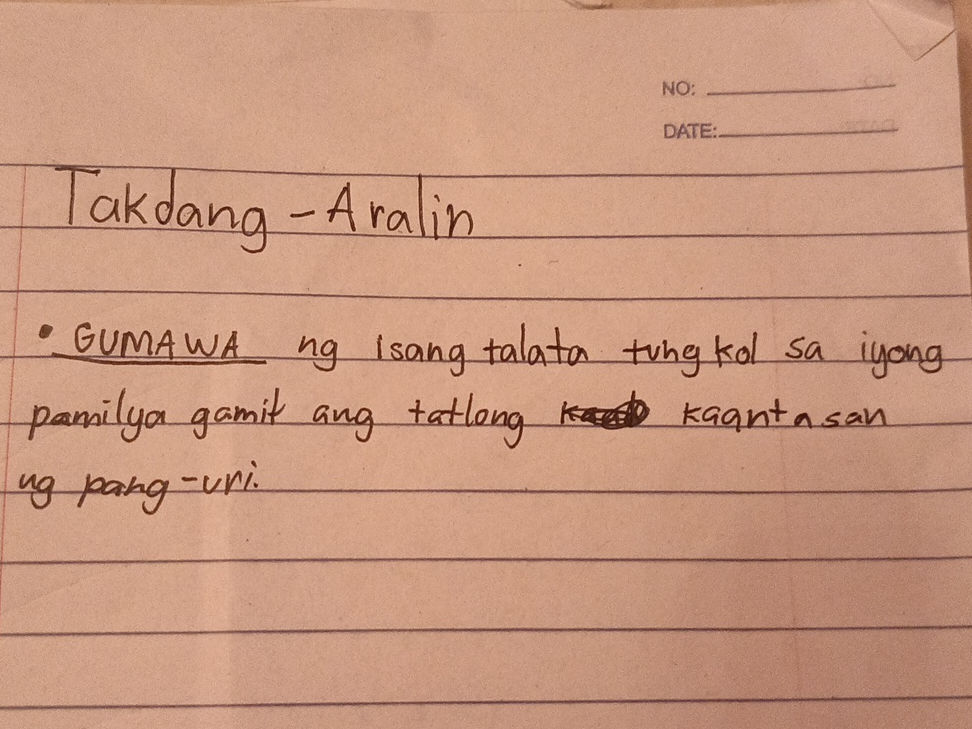 NO:
DATE:
Takdang-Aralin
• GUMAWA ng isang talata tungkol sa iyong
pamilya gamit ang tatlong kaantasan
ng pang-uri.